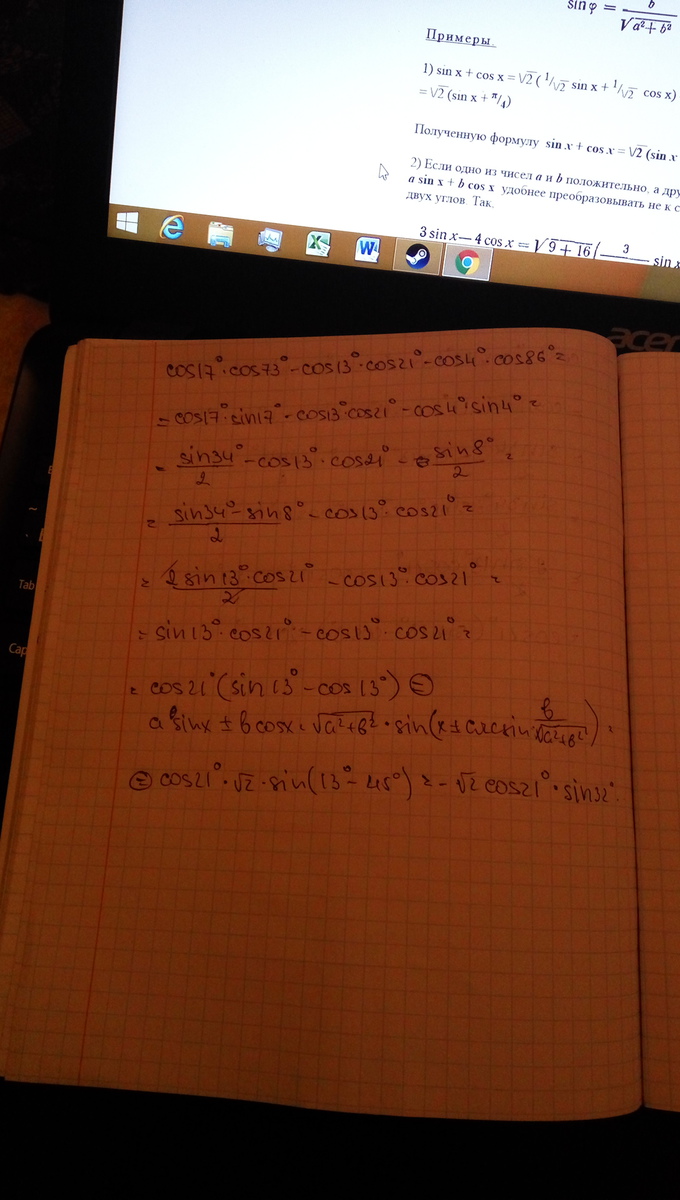 sin φ = b / √a²+b²
Примеры.
1) sin x + cos x = √2 ( 1/√2 sin x + 1/√2 cos x)
= √2 (sin x + π/4)
Полученную формулу sin x + cos x = √2 (sin x
2) Если одно из чисел a и b положительно, а дру
a sin x + b cos x удобнее преобразовывать не к с
двух углов. Так.
3 sin x — 4 cos x = √9 + 16 ( 3 sin x
acer
cos17°·cos73° - cos13°·cos21° - cos4°·cos86° =
= cos17°·sin17° - cos13°·cos21° - cos4°·sin4° =
= sin34°/2 - cos13°·cos21° - sin8°/2 =
= (sin34° - sin8°)/2 - cos13°·cos21° =
= 2 sin13°·cos21°/2 - cos13°·cos21° =
= sin13°·cos21° - cos13°·cos21° =
= cos21°(sin13° - cos13°) ⊜
a sinx ± b cosx = √a²+b² · sin(x ± arcsin b/√a²+b²) =
⊜ cos21°·√2·sin(13° - 45°) = -√2 cos21°·sin32°.
Tab
Cap